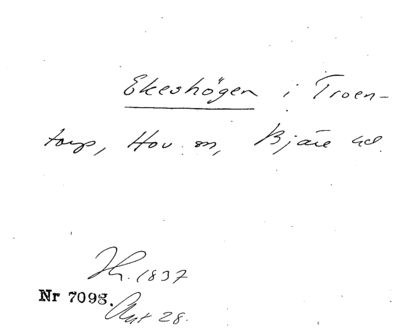 Ekeshögen i Troen-
torp, Hov sn, Bjäre hd.
Th. 1837
Nr 7098.
Ant 28.